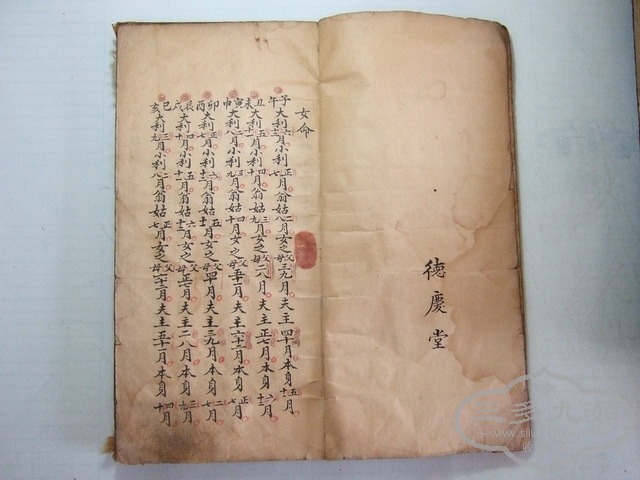 徳慶堂
女命
子午大利六十二月小利正七月翁姑二八月女之父母三九月夫主四十月本身五十一月
丑未大利五十一月小利四十月翁姑三九月女之父母二八月夫主正七月本身六十二月
寅申大利二八月小利三九月翁姑四十月女之父母五十一月夫主六十二月本身正七月
卯酉大利正七月小利六十二月翁姑五十一月女之父母四十月夫主三九月本身二八月
辰戌大利四十月小利五十一月翁姑六十二月女之父母正七月夫主二八月本身三九月
巳亥大利三九月小利二八月翁姑正七月女之父母六十二月夫主五十一月本身四十月